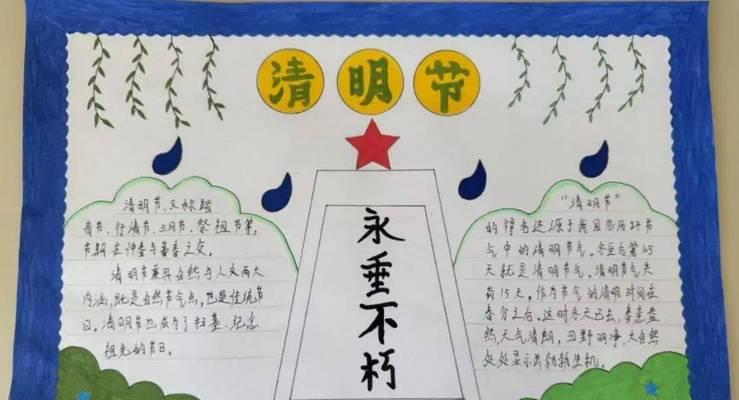 清明节
永垂不朽
清明节、又称踏
青节、行清节、三月节、祭祖节等,
节期在仲春与暮春之交。
清明节兼具自然与人文两大
内涵,既是自然节气点,也是传统节
日。清明节也成为了扫墓、纪念
祖先的节日。
"清明节"
的得名还源于我国农历24节
气中的清明节气。冬至后第105
天就是清明节气。清明节气共
有15天。作为节气的清明,时间在
春分之后。这时冬天已去,春意盎
然,天气清朗,四野明净,大自然
处处显示出勃勃生机。